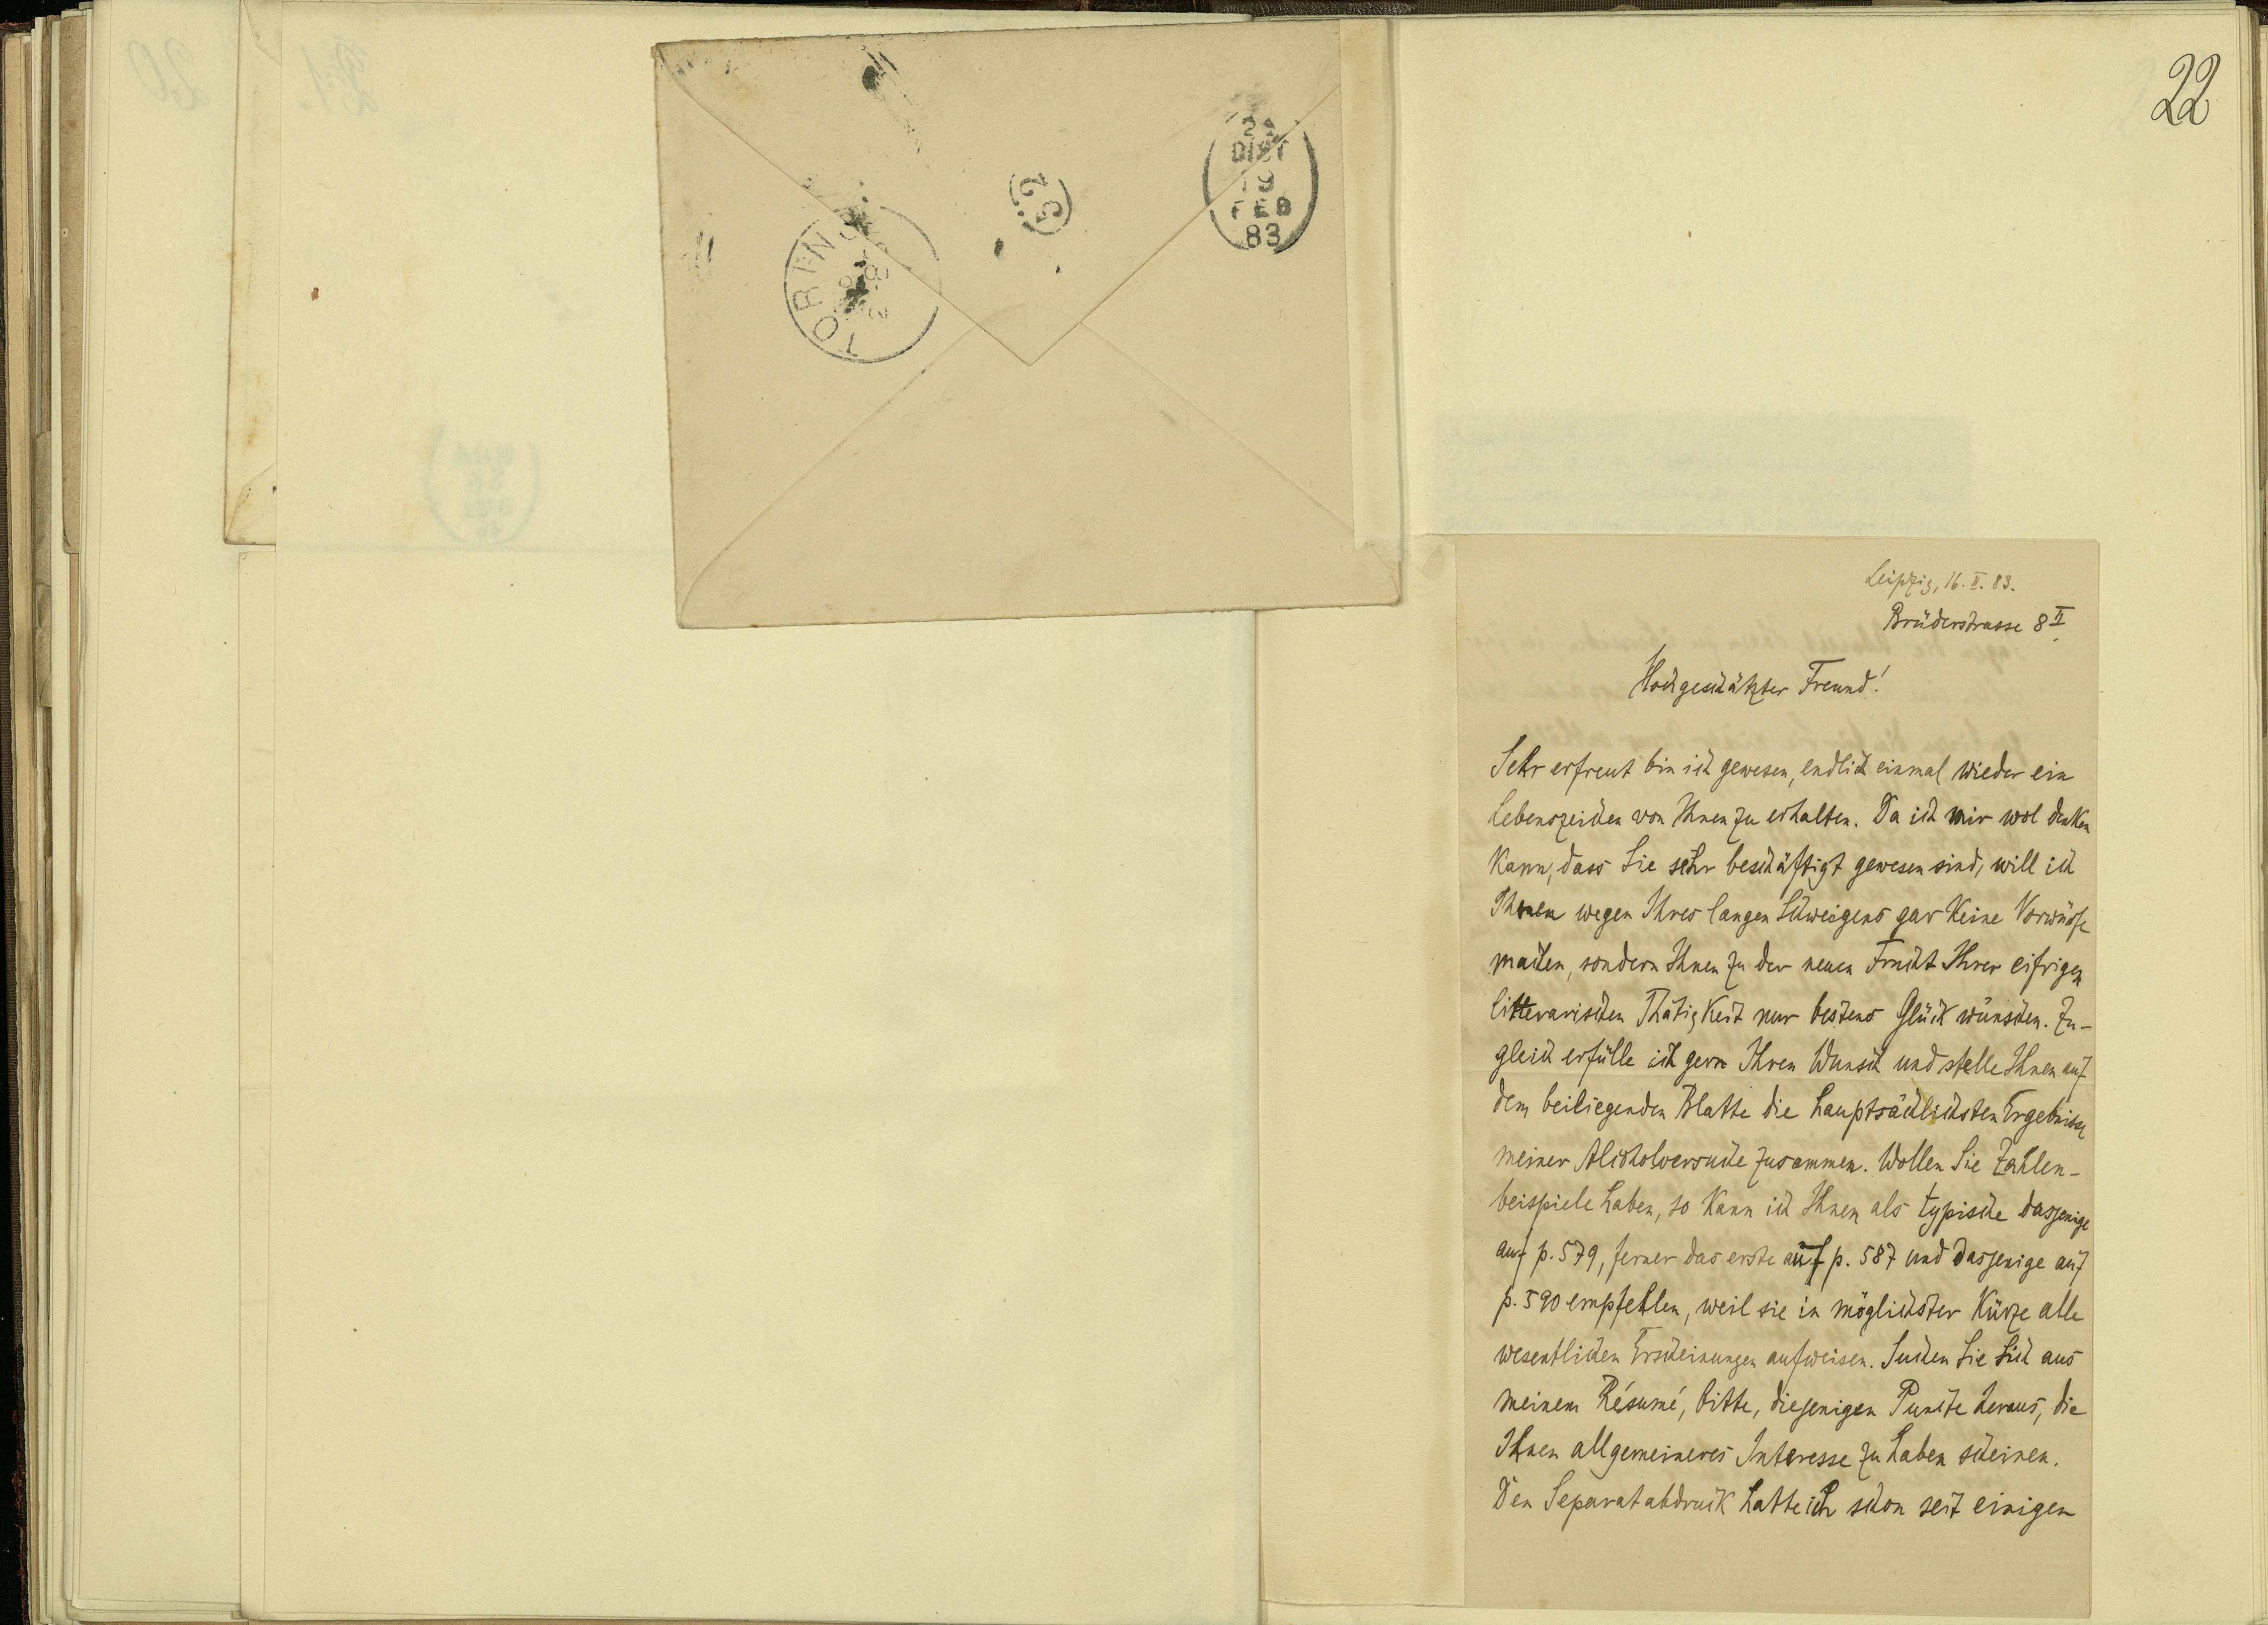 22
2A
DIST
19
FEB
83
52
TORINO
83
Leipzig, 16. II. 83.
Brüderstrasse 8 II.
Hochgeschätzter Freund!
Sehr erfreut bin ich gewesen, endlich einmal wieder ein
Lebenszeichen von Ihnen zu erhalten. Da ich mir wol denken
kann, dass Sie sehr beschäftigt gewesen sind, will ich
Ihnen wegen Ihres langen Schweigens gar keine Vorwürfe
machen, sondern Ihnen zu der neuen Frucht Ihrer eifrigen
litterarischen Thätigkeit nur bestens Glück wünschen. Zu-
gleich erfülle ich gern Ihren Wunsch und stelle Ihnen auf
dem beiliegenden Blatte die hauptsächlichsten Ergebnisse
meiner Alcoholversuche zusammen. Wollen Sie Zahlen-
beispiele haben, so kann ich Ihnen als typische dasjenige
auf p. 579, ferner das erste auf p. 587 und dasjenige auf
p. 590 empfehlen, weil sie in möglichster Kürze alle
wesentlichen Erscheinungen aufweisen. Suchen Sie Sich aus
meinem Résumé, bitte, diejenigen Puncte heraus, die
Ihnen allgemeineres Interesse zu haben scheinen.
Den Separatabdruck hatte ich schon seit einigen